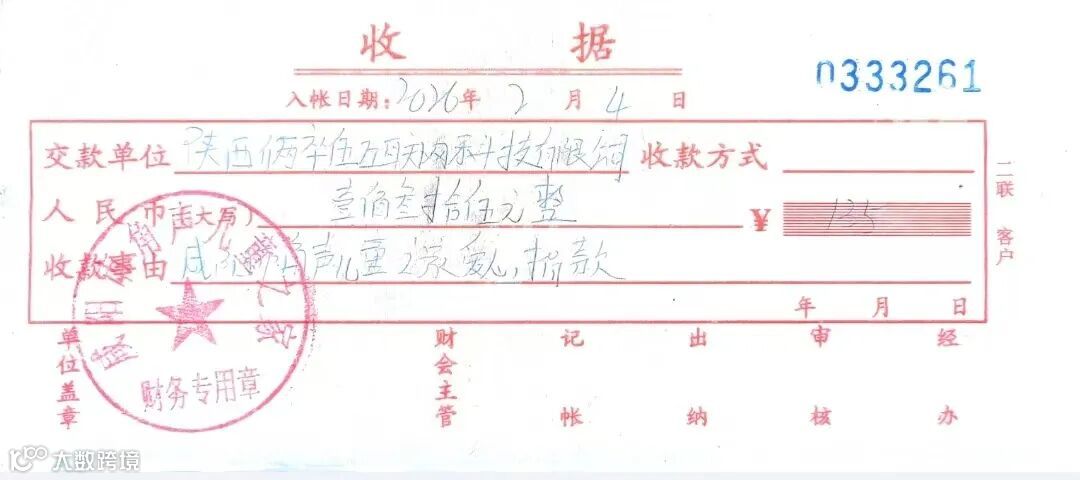 收 据
0333261
入帐日期:2026年 2 月 4 日
交款单位 陕西俩卒伍互联网科技有限公司 收款方式
人民币(大写) 壹佰叁拾伍元整 ¥ 135
收款事由 咸阳 声儿童之家爱心捐款
年 月 日
二联 客户
财务专用章
单位盖章 财会主管 记帐 出纳 审核 经办
大数跨境